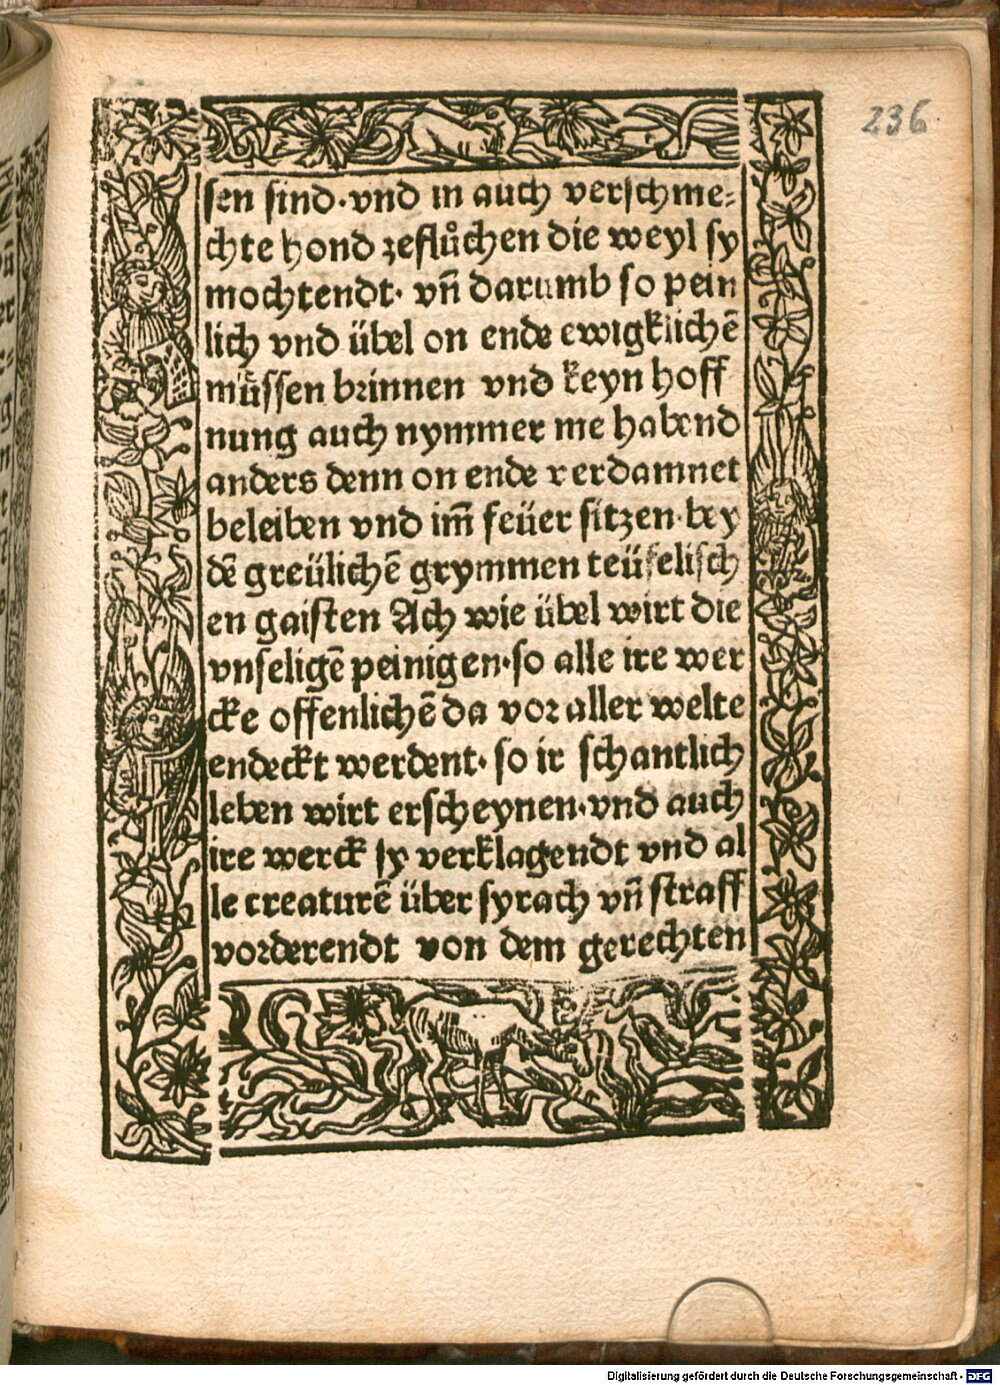 236
sen sind·vnd in auch verschme⸗
chte hond zeflůchen die weyl sy
mochtendt· vn̄ darumb so pein
lich vnd übel on ende ewigklichē
müssen brinnen vnd keyn hoff
nung auch nymmer me habend
anders denn on ende verdamnet
beleiben vnd im̄ feüer sitzen·bey
dē greülichē grymmen teüfelisch
en gaisten Ach wie übel wirt die
vnseligē peinigen·so alle ire wer
cke offenlichē da vor aller welte
endeckt werdent· so ir schantlich
leben wirt erscheynen·vnd auch
ire werck sy verklagendt vnd al
le creaturē über sy rach vn̄ straff
vorderendt von dem gerechten
Digitalisierung gefördert durch die Deutsche Forschungsgemeinschaft - DFG